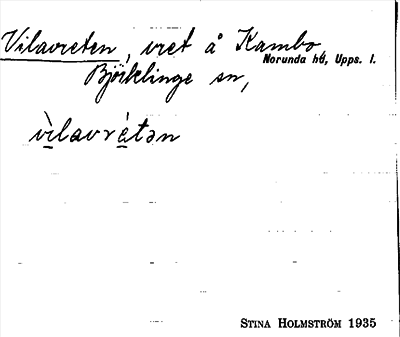 Vilavreten, vret å Kambo,
Norunda hd, Upps. l.
Björklinge sn,
vìlavrétən
STINA HOLMSTRÖM 1935